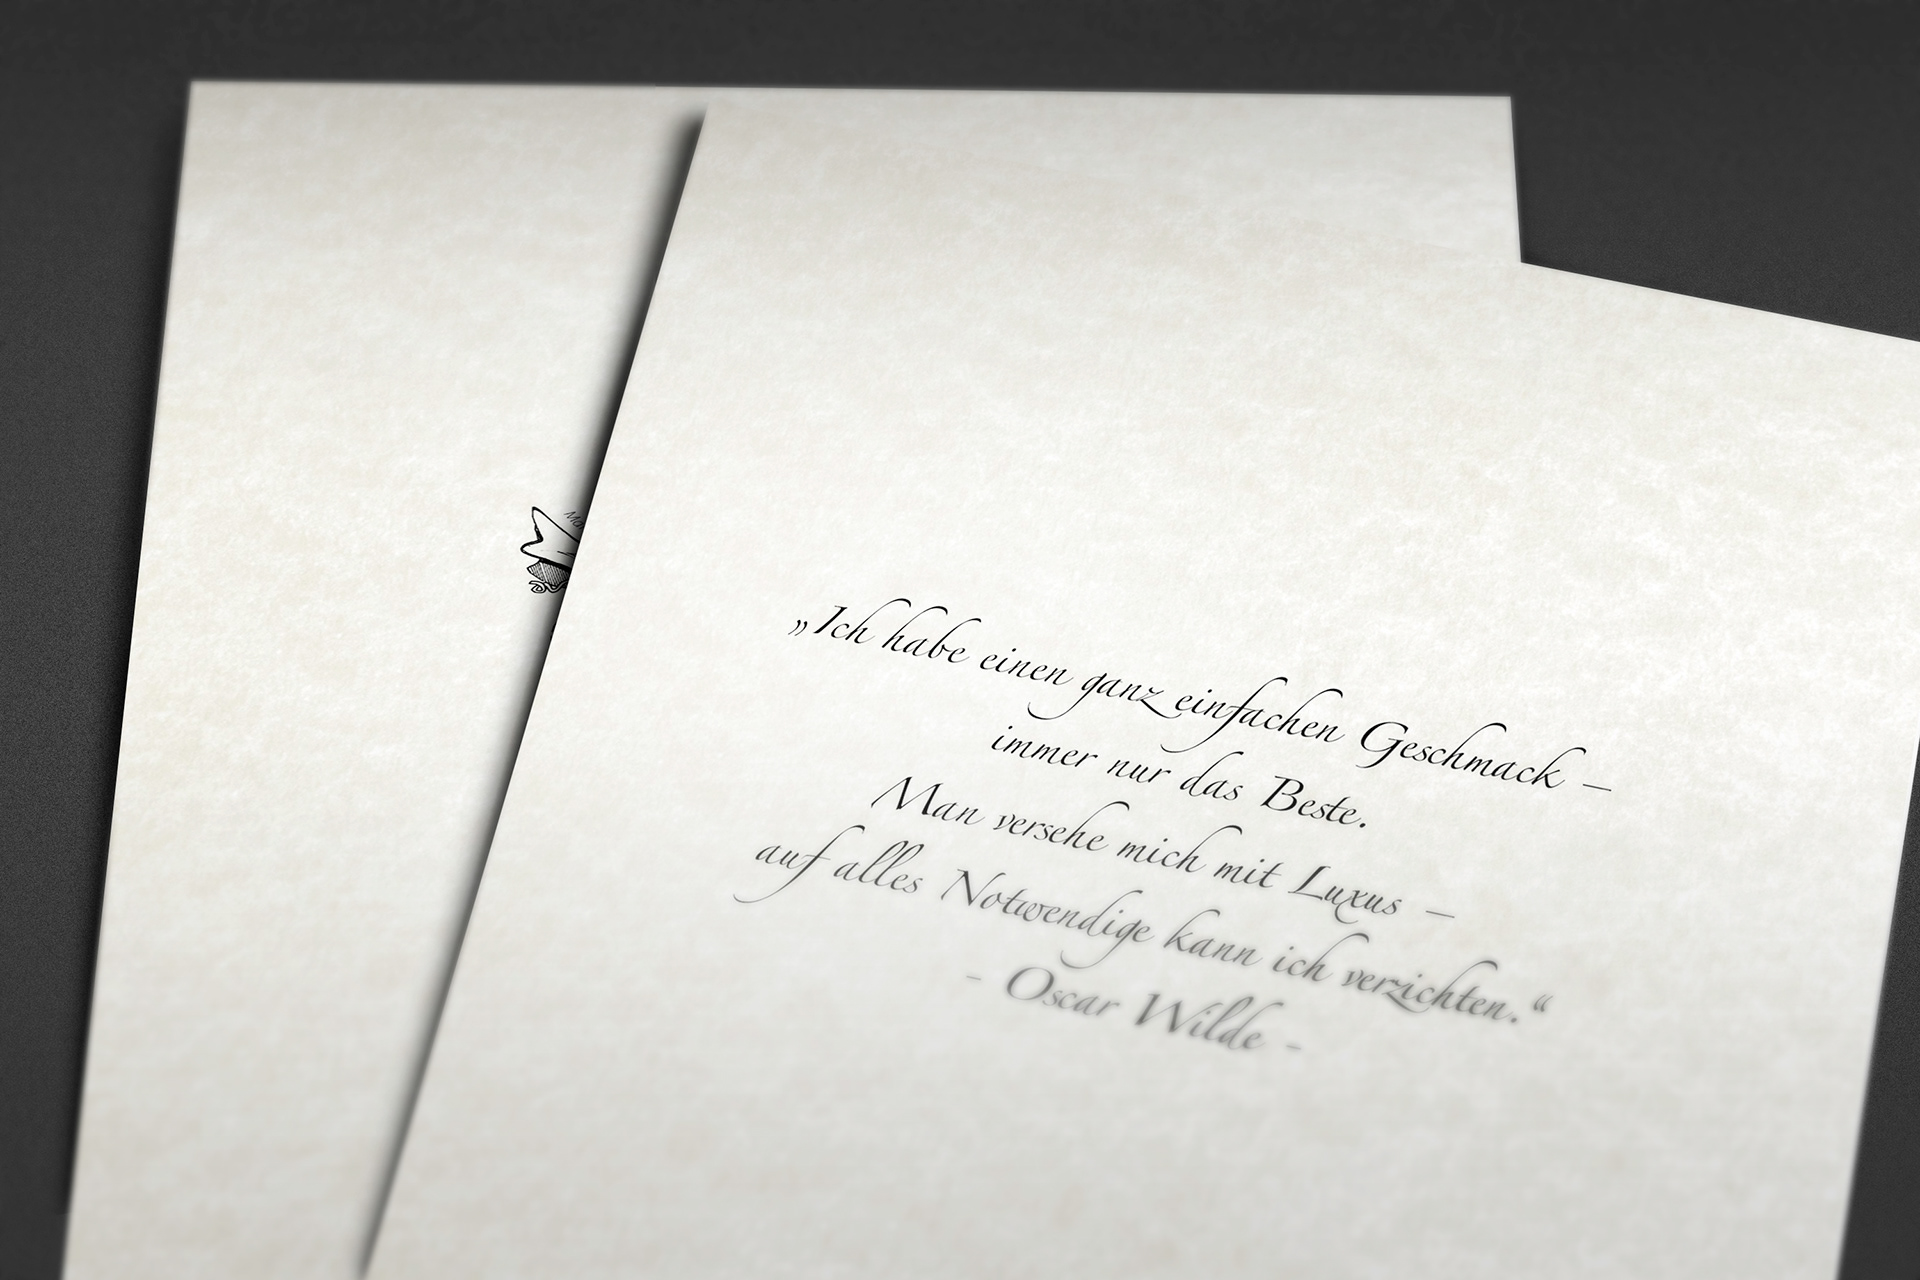 „Ich habe einen ganz einfachen Geschmack –
immer nur das Beste.
Man versehe mich mit Luxus –
auf alles Notwendige kann ich verzichten.“
- Oscar Wilde -